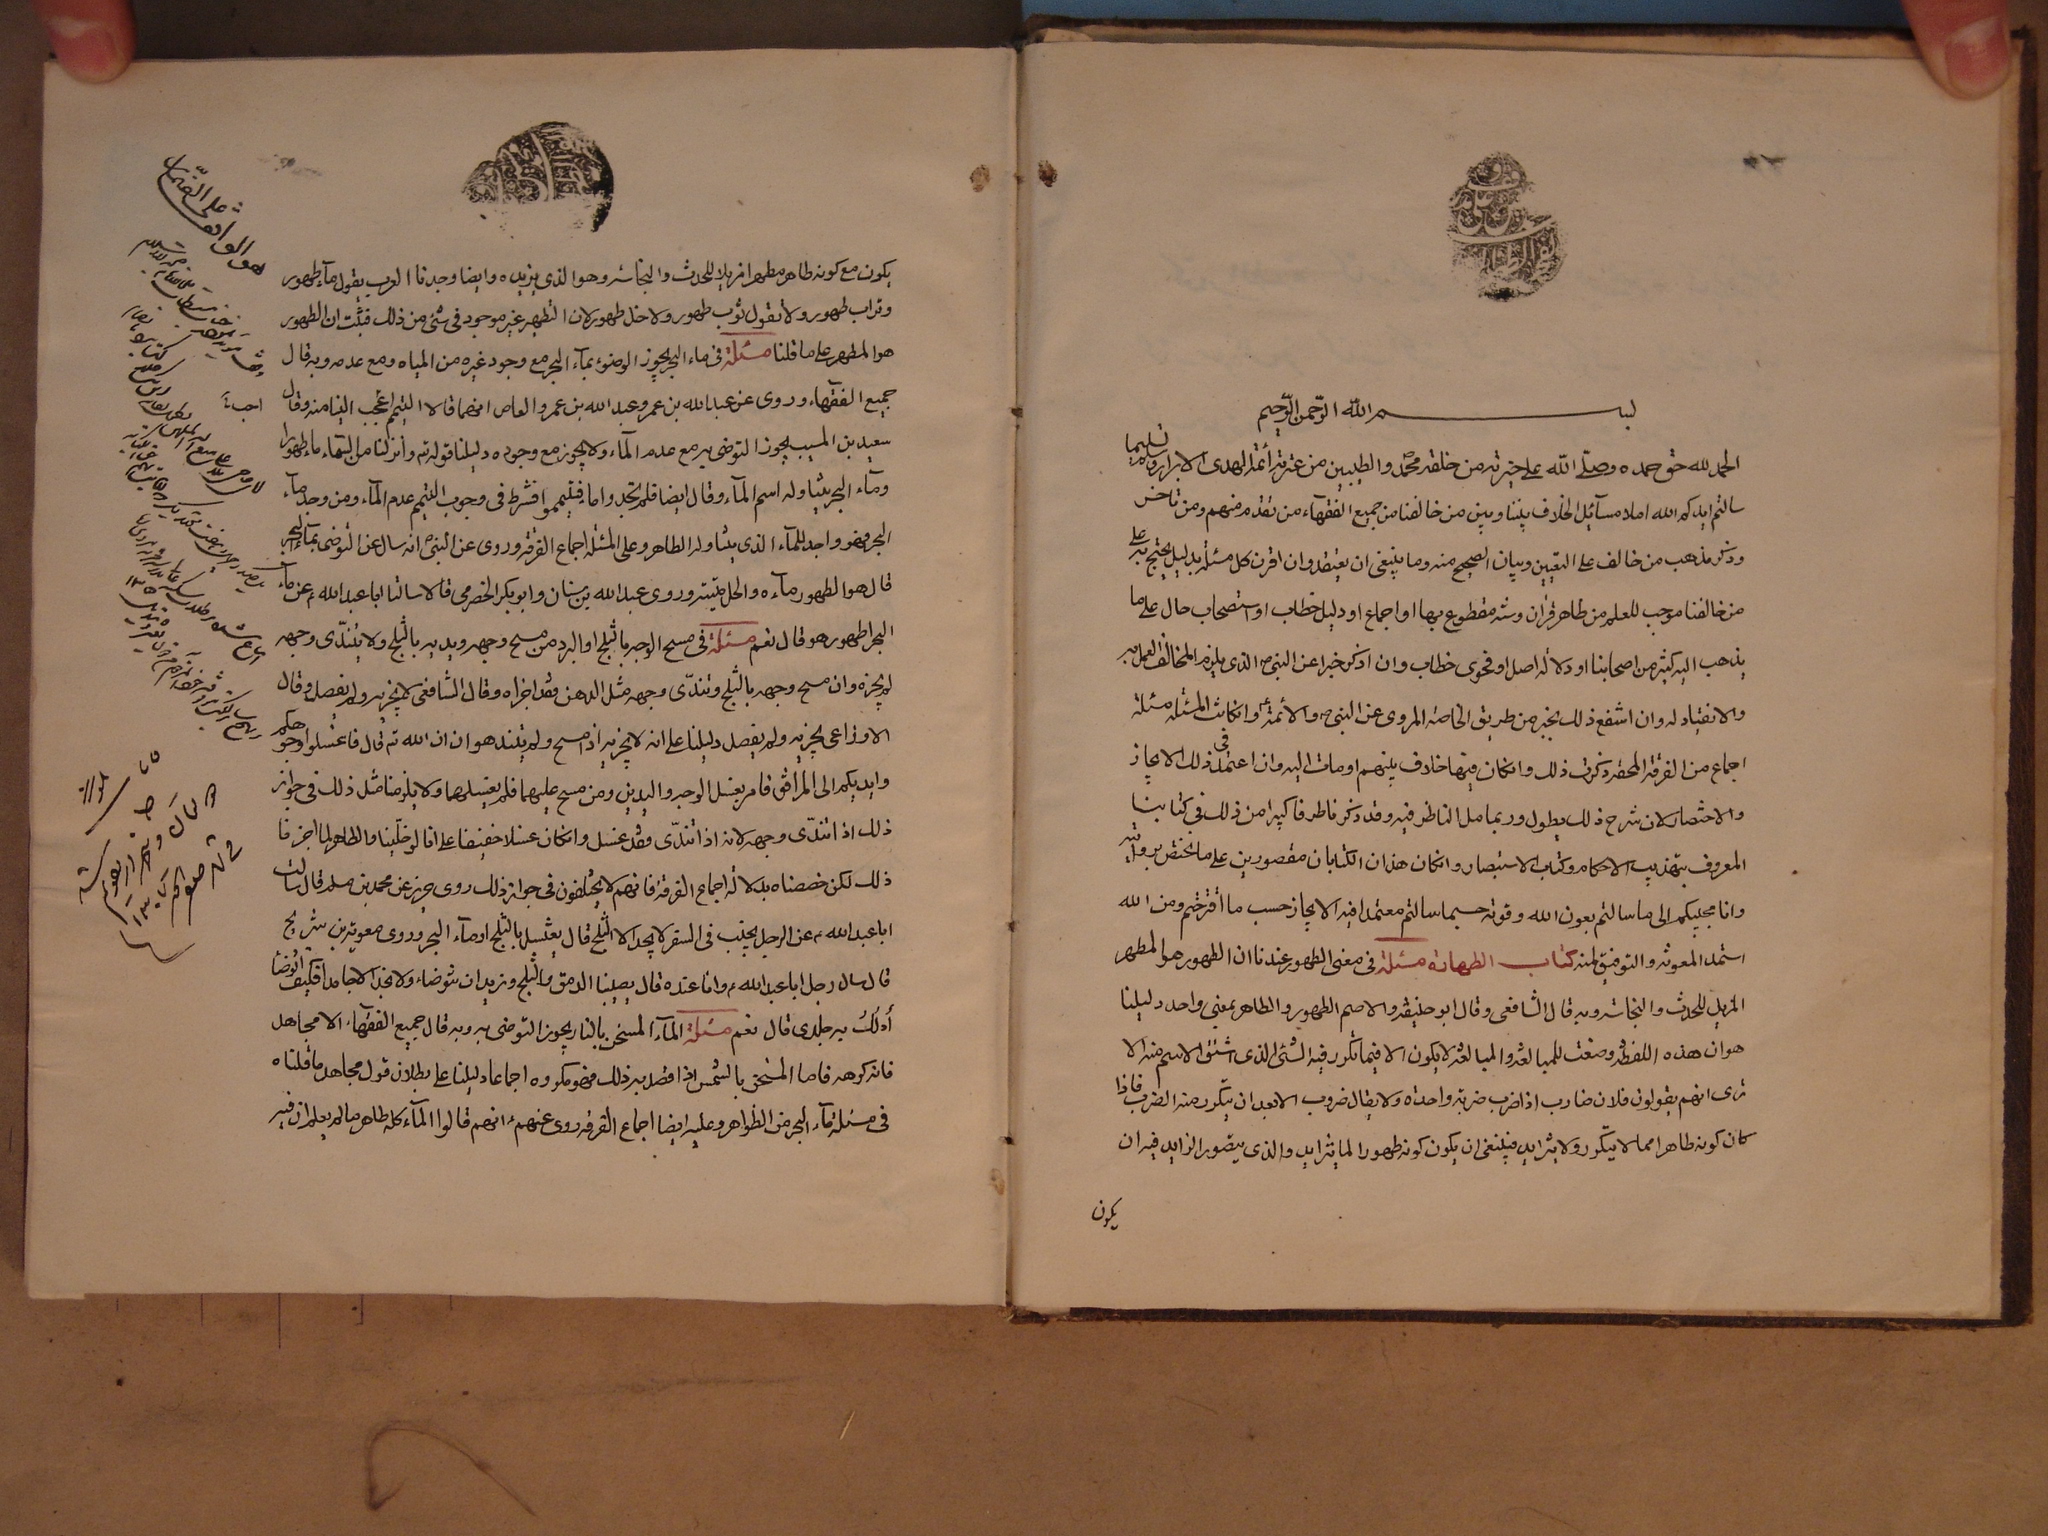 بسم الله الرحمن الرحيم
الحمد لله حق حمده وصلى الله على خيرته من خلقه محمد والطيبين من عترته أئمة الهدى الابرار وسلم تسليما
سالتم ايدكم الله املا مسآئل الخلاف بيننا وبين من خالفنا من جميع الفقهآء من تقدم منهم ومن تاخر
وذكر مذهب من خالف على التعيين وبيان الصحيح منه وما ينبغى ان يعتقد وان اقرن كل مسئلة بدليل يحتج به على
من خالفنا موجب للعلم من ظاهر قران وسنة مقطوع بها او اجماع او دليل خطاب او استصحاب حال على ما
يذهب اليه كثير من اصحابنا او دلالة اصل او فحوى خطاب وان اذكر خبرا عن النبى ص الذى يلزم المخالف العمل به
والانقياد له وان اشفع ذلك بخبر من طريق الخاصة المروى عن النبى ص والأئمة ع وان كانت المسئلة مسئلة
اجماع من الفرقة المحقة ذكرت ذلك وان كان فيها خلاف بينهم اومات اليه وان اعتمد فى ذلك الايجاز
والاختصار لان شرح ذلك يطول وربما مل الناظر فيه وقد ذكرنا طرفا كبيرا من ذلك فى كتابنا
المعروف بتهذيب الاحكام وكتاب الاستبصار وان كان هذان الكتابان مقصورين على ما نختص بروايته
وانا مجيبكم الى ما سالتم بعون الله وقوته حسبما سالتم معتمدا فيه الايجاز حسب ما أقترحتم ومن الله
استمد المعونة والتوفيق لمنه كتاب الطهارة مسئلة فى معنى الطهور عندنا ان الطهور هو المطهر
المزيل للحدث والنجاسة وبه قال الشافعى وقال ابو حنيفة والاصم الطهور والطاهر بمعنى واحد دليلنا
هو ان هذه اللفظة وضعت للمبالغة والمبالغة لا يكون الا فيما تكرر فيه الشئ الذى اشتق الاسم منه الا
ترى انهم يقولون فلان ضارب اذا ضرب ضربة واحدة ولا يقال ضروب الا بعد ان يتكرر منه الضرب فاذا
كان كونه طاهرا مما لا يتكرر ولا يتزايد فينبغى ان يكون كونه طهورا لما يتزايد والذى يتصور الزايد فيه ان
يكون
يكون مع كونه طاهر مطهرا مزيلا للحدث والنجاسة وهو الذى يزيده وايضا وجدنا العرب يقول مآء طهور
وتراب طهور ولا تقول ثوب طهور ولا خل طهور لان التطهير غير موجود فى شئ من ذلك فثبت ان الطهور
هو المطهر على ما قلنا مسئلة فى ماء البحر يجوز الوضوء بمآء البحر مع وجود غيره من المياه ومع عدمه وبه قال
جميع الفقهاء وروى عن عبد الله بن عمر وعبد الله بن عمرو العاص انهما قالا التيمم اعجب الينا منه وقال
سعيد بن المسيب يجوز التوضى به مع عدم المآء ولا يجوز مع وجوده دليلنا قوله تع وأنزلنا من السماء ماء طهورا
ومآء البحر يتناوله اسم المآء وقال ايضا فلم تجدوا ماء فتيمموا فشرط فى وجوب التيمم عدم المآء ومن وجد مآء
البحر فهو واجد للمآء الذى يتناوله الظاهر وعلى المسئلة اجماع الفرقة وروى عن النبى ص انه سال عن التوضى بمآء البحر
قال هو الطهور مآءه والحل ميتته وروى عبد الله بن سنان وابو بكر الحضرمى قالا سالنا ابا عبد الله ع عن مآء
البحر اطهور هو قال نعم مسئلة فى مسح الوجه بالثلج او البرد من مسح وجهه ويديه بالثلج ولا يتندى وجهه
لم يجزه وان مسح وجهه بالثلج وتندّى وجهه مثل الدهن فقد اجزاه وقال الشافعى لا يجزيه ولم يفصل وقال
الاوزاعى يجزيه ولم يفصل دليلنا على انه لا يجزيه اذا مسح ولم يتند هو ان الله تع قال فاغسلوا وجوهكم
وايديكم الى المرافق فامر بغسل الوجه واليدين ومن مسح عليهما فلم يغسلهما ولا يلزمنا مثل ذلك فى جواز
ذلك اذا تندّى وجهه لانه اذا تندّى فقد غسل وان كان غسلا خفيفا على انا لو خلينا والظاهر لما اجزنا
ذلك لكن خصصناه بدلالة اجماع الفرقة فانهم لا يختلفون فى جواز ذلك روى حريز عن محمد بن مسلم قال سالت
ابا عبد الله ع عن الرجل يجنب فى السفر لا يجد الا الثلج قال يغتسل بالثلج او مآء البحر وروى معوية بن شريح
قال سال رجل ابا عبد الله ع وانا عنده قال يصيبنا الدمق والثلج ونريد ان نتوضاء ولا نجد الا جامدا فكيف اتوضأ
أدلك به جلدى قال نعم مسئلة المآء المسخن بالنار يجوز التوضى به وبه قال جميع الفقهآء الا مجاهد
فانه كرهه فاما المسخن بالشمس اذا قصد به ذلك فهو مكروه اجماعا دليلنا على بطلان قول مجاهد ما قلناه
فى مسئلة مآء البحر من الظواهر وعليه ايضا اجماع الفرقة روى عنهم ع انهم قالوا المآء كله طاهر ما لم يعلم ان فيه
هو الواقف على الضمائر